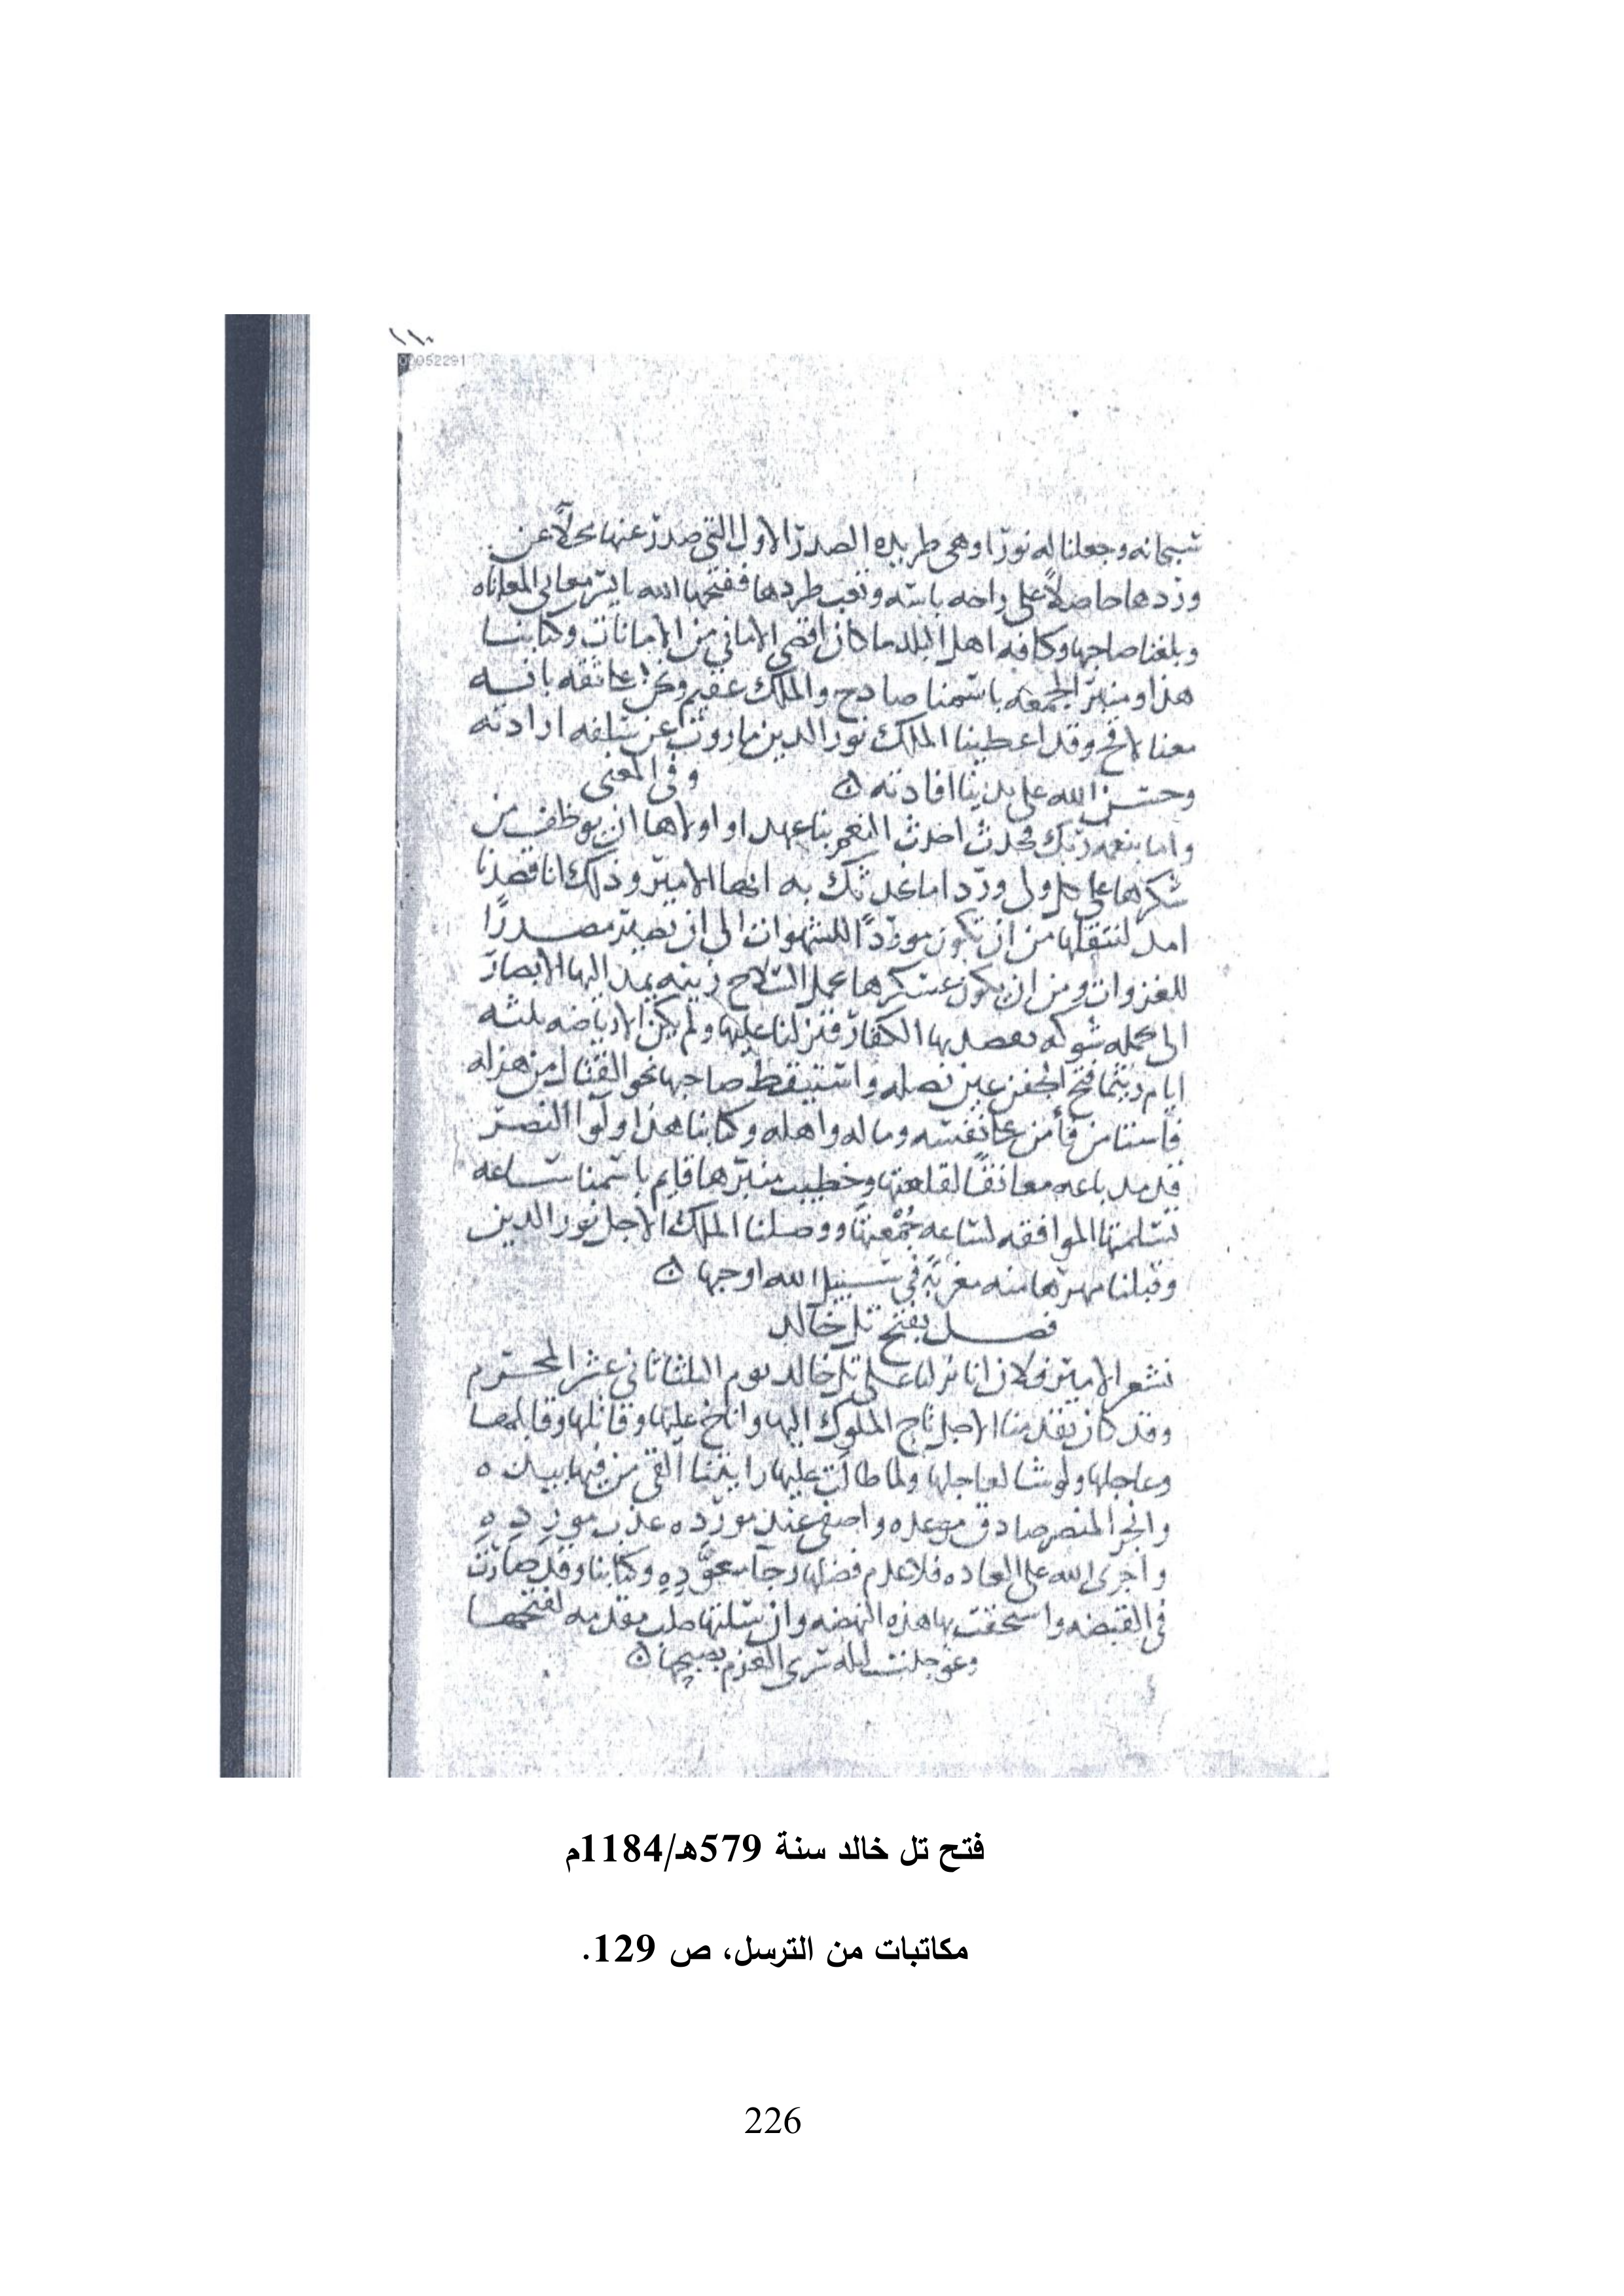 ١١٠
00052291
سبحانه وجعلنا له نورا وهي طريده الصدر الاول التي صدر عنها محلاً عن
وردها حاصلاً على راحه باسه وتعب طردها ففتحها الله بايسر معاني المعاناه
وبلغنا صاحبها وكافه اهل البلد ما كان اقصى الاماني من الامانات وكتابنا
هذا ومنبر الجمعه باسمنا صادح والملك عقيم ونحن
معنا لاقح وقد اعطينا الملك نور الدين ما روت عن سلفه ارادته
وحسن الله على يدينا افادته ه وفي المعنى
واما بنعمه ربك فحدث احدث النعم بنا عهدا واولاها ان يوظف من
شكرها على كل ولي وردا ما نحدثك به ايها الامير وذلك انا قصدنا
امد لننقلها من ان تكون موردًا للشهوات الى ان تصير مصدرًا
للغزوات ومن ان يكون عسكرها يحمل السلاح زينه يمد اليها الابصار
الى حمله شوكه يقصد بها الكفار فنزلنا عليها ولم يكن الا رياضه ثلثه
ايام ريثما فتح الجفن عين نصله واستيقظ صاحبها نحو القتال من هزله
فاستامن فأمن على نفسه وماله واهله وكتابنا هذا ولوآ النصر
قد مد باعه معانقًا لقلعتها وخطيب منبرها قايم باسمنا ساعه
تسلمتها الموافقه لساعه جُمْعتها ووصلنا الملك الاجل نور الدين
وقبلنا مهرها منه في سبيل الله اوجها ه
فصل بفتح تل خالد
نشعر الامير فلان انا نزلنا على تل خالد يوم الثلثا ثاني عشر المحرم
وقد كان تقدمنا الاجل تاج الملوك اليها واناخ عليها وقاتلها وقابلها
وعاجلها ولو شا لعاجلها ولما طالت عليها رايتنا القى من فيها بيده
وانجز النصر صادق موعده واصفى عند مورده عذب مورده
واجرى الله على العاده فلا عدم فضلها وجآ بعوَّده وكتابنا وقد صارت
في القبضه واستحقت بها هذه النهضه وان حلب مقدمه لفتحها
ليله سرى العزم بصبحها ه
فتح تل خالد سنة 579هـ/1184م
مكاتبات من الترسل، ص 129.
226